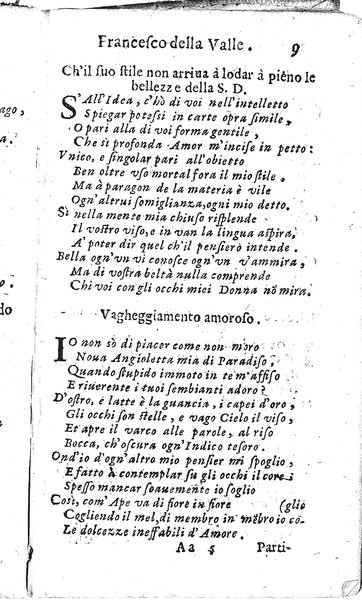 Francesco della Valle. 9
Ch'il suo stile non arriua à lodar à pieno le
bellezze della S. D.
S'All'Idea, c'hò di voi nell'intelletto
Spiegar potessi in carte opra simile,
O pari alla di voi forma gentile,
Che sì profonda Amor m'incise in petto:
Vnico, e singolar pari all'obietto
Ben oltre vso mortal fora il mio stile.
Ma à paragon de la materia è vile
Ogn'altrui somiglianza, ogni mio detto.
Sì nella mente mia chiuso risplende
Il vostro viso, e in van la lingua aspira,
A' poter dir quel ch'il pensierò intende.
Bella ogn'un vi conosce ogn'vn v'ammira,
Ma di vostra beltà nulla comprende
Chi voi con gli occhi miei Donna nō mira.
Vagheggiamento amoroso.
IO non sò di piacer come non moro
Noua Angioletta mia di Paradiso,
Quando stupido immoto in te m'affiso
E riuerente i tuoi sembianti adoro?
D'ostro, e latte è la guancia, i capei d'oro,
Gli occhi son stelle, e vago Cielo il viso,
Et apre il varco alle parole, al riso
Bocca, ch'oscura ogn'Indico tesoro.
Ond'io d'ogn'altro mio pensier mi spoglio,
E fatto à contemplar su gli occhi il core
Spesso mancar soauemente io soglio
Così, com'Ape va di fiore in fiore (glio
Cogliendo il mel, di membro in mēbro io co-
Le dolcezze ineffabili d'Amore.
Aa 5 Parti-
ago,